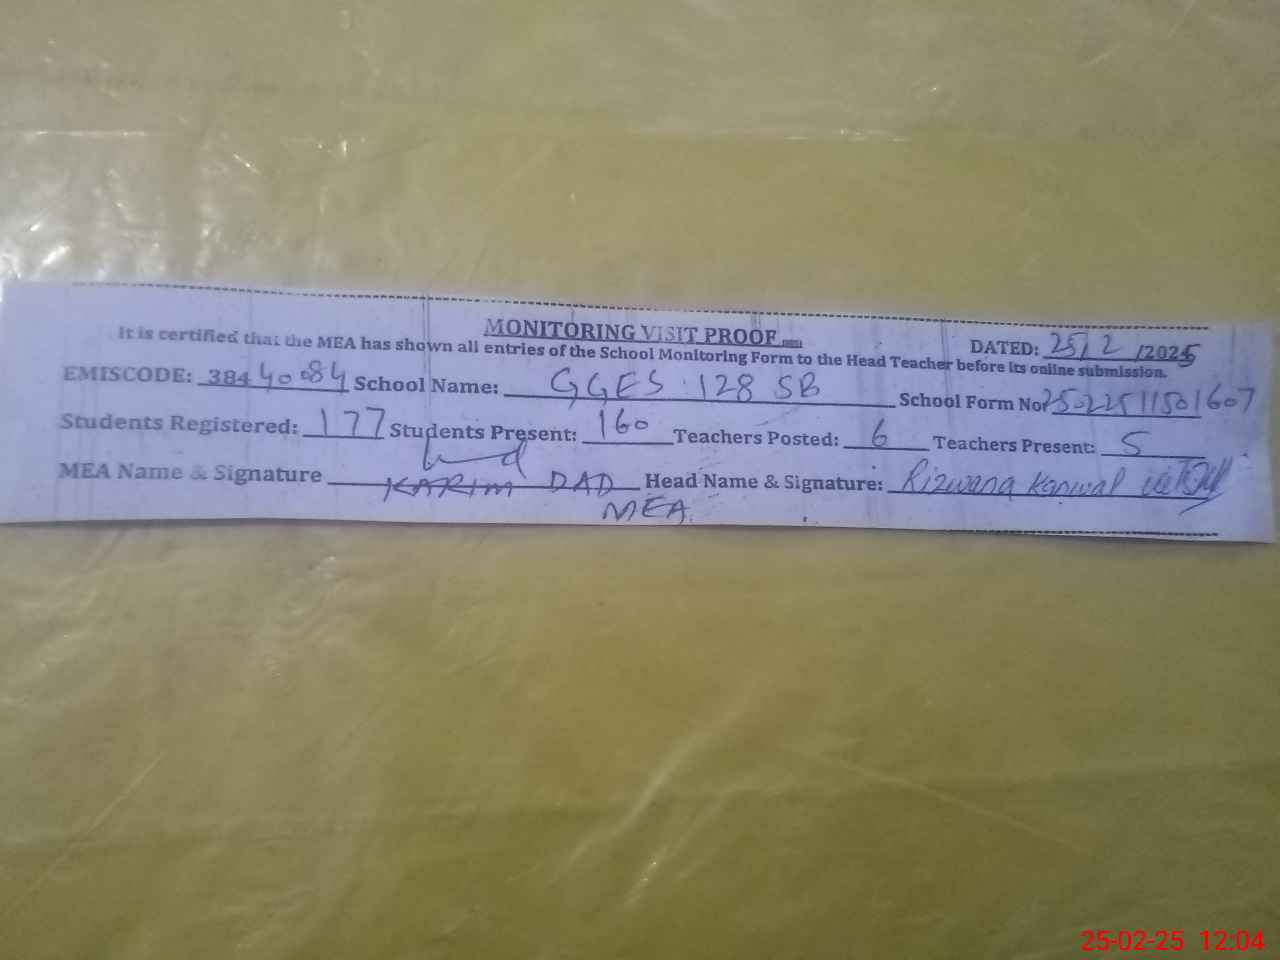 MONITORING VISIT PROOF
DATED: 25/2/2025
It is certified that the MEA has shown all entries of the School Monitoring Form to the Head Teacher before its online submission.
EMISCODE: 38440084 School Name: GGES 128 SB School Form No: 25022511501607
Students Registered: 177 Students Present: 160 Teachers Posted: 6 Teachers Present: 5
MEA Name & Signature KARIM DAD Head Name & Signature: Rizwana Kanwal
MEA
25-02-25 12:04